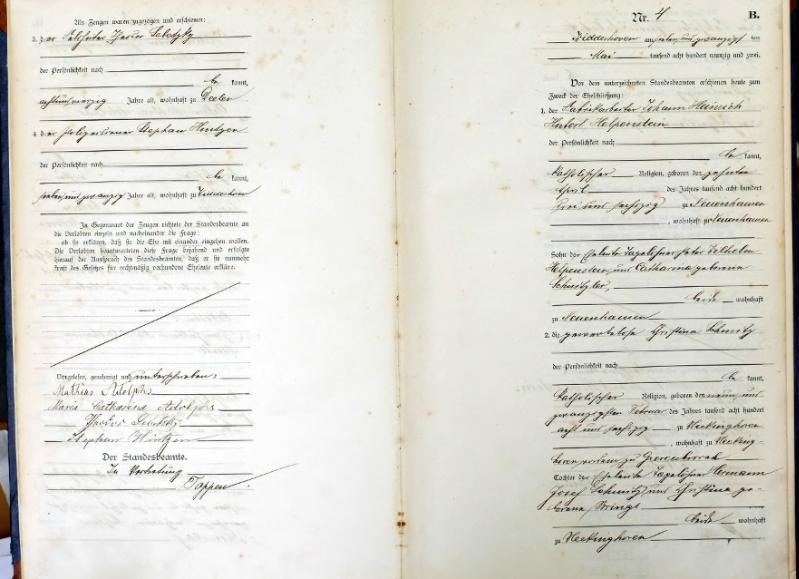 Als Zeugen waren zugezogen und erschienen:
3. der
der Persönlichkeit nach
be kannt,
achtundvierzig Jahre alt, wohnhaft zu
4. der Stephan Hintzen
der Persönlichkeit nach
be kannt,
siebenundzwanzig Jahre alt, wohnhaft zu Hidderhoven
In Gegenwart der Zeugen richtete der Standesbeamte an
die Verlobten einzeln und nacheinander die Frage:
ob sie erklären, daß sie die Ehe mit einander eingehen wollen.
Die Verlobten beantworteten diese Frage bejahend und erfolgte
hierauf der Ausspruch des Standesbeamten, daß er sie nunmehr
kraft des Gesetzes für rechtmäßig verbundene Eheleute erkläre.
Vorgelesen, genehmigt und unterschrieben:
Mathias Adolphs
Maria Catharina Adolphs
Stephan Hintzen
Der Standesbeamte.
In Vertretung
Toppen.
Nr. 4
B.
am
Mai tausend acht hundert neunzig und zwei.
Vor dem unterzeichneten Standesbeamten erschienen heute zum
Zweck der Eheschließung:
1. der Fabrikarbeiter Johann Heinrich
Hubert Helpenstein
der Persönlichkeit nach
be kannt,
katholischer Religion, geboren den zehnten
April des Jahres tausend acht hundert
drei und sechszig zu Neuenhausen
, wohnhaft zu Neuenhausen
Sohn der Eheleute Tagelöhner Peter
Helpenstein und Catharina geborene
Schnitzler,
beide wohnhaft
zu Neuenhausen
2. die gewerbelose Christina Schmitz
der Persönlichkeit nach
be kannt,
katholischer Religion, geboren den neun und
zwanzigsten Februar des Jahres tausend acht hundert
acht und sechszig zu
, wohnhaft zu
zu Grevenbroich
Tochter der Eheleute Tagelöhner Hermann
Josef Schmitz und Christina ge-
borene
beide wohnhaft
zu